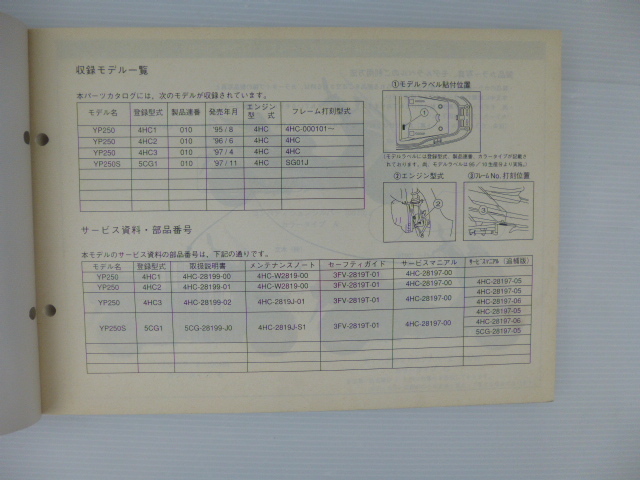 収録モデル一覧
本パーツカタログには、次のモデルが収録されています。
モデル名 登録型式 製品連番 発売年月 エンジン型式 フレーム打刻型式
YP250 4HC1 010 '95/8 4HC 4HC-000101〜
YP250 4HC2 010 '96/6 4HC 4HC
YP250 4HC3 010 '97/4 4HC 4HC
YP250S 5CG1 010 '97/11 4HC SG01J
①モデルラベル貼付位置
①
②エンジン型式
②
③フレームNo.打刻位置
③
サービス資料・部品番号
本モデルのサービス資料の部品番号は、下記の通りです。
モデル名 登録型式 取扱説明書 メンテナンスノート セーフティガイド サービスマニアル サービスマニアル(追補版)
YP250 4HC1 4HC-28199-00 4HC-W2819-00 3FV-2819T-01 4HC-28197-00
YP250 4HC2 4HC-28199-01 4HC-W2819-00 3FV-2819T-01 4HC-28197-00 4HC-28197-05
YP250 4HC3 4HC-28199-02 4HC-2819J-01 3FV-2819T-01 4HC-28197-00 4HC-28197-05
4HC-28197-06
YP250S 5CG1 5CG-28199-J0 4HC-2819J-S1 3FV-2819T-01 4HC-28197-00 4HC-28197-05
4HC-28197-06
5CG-28197-05